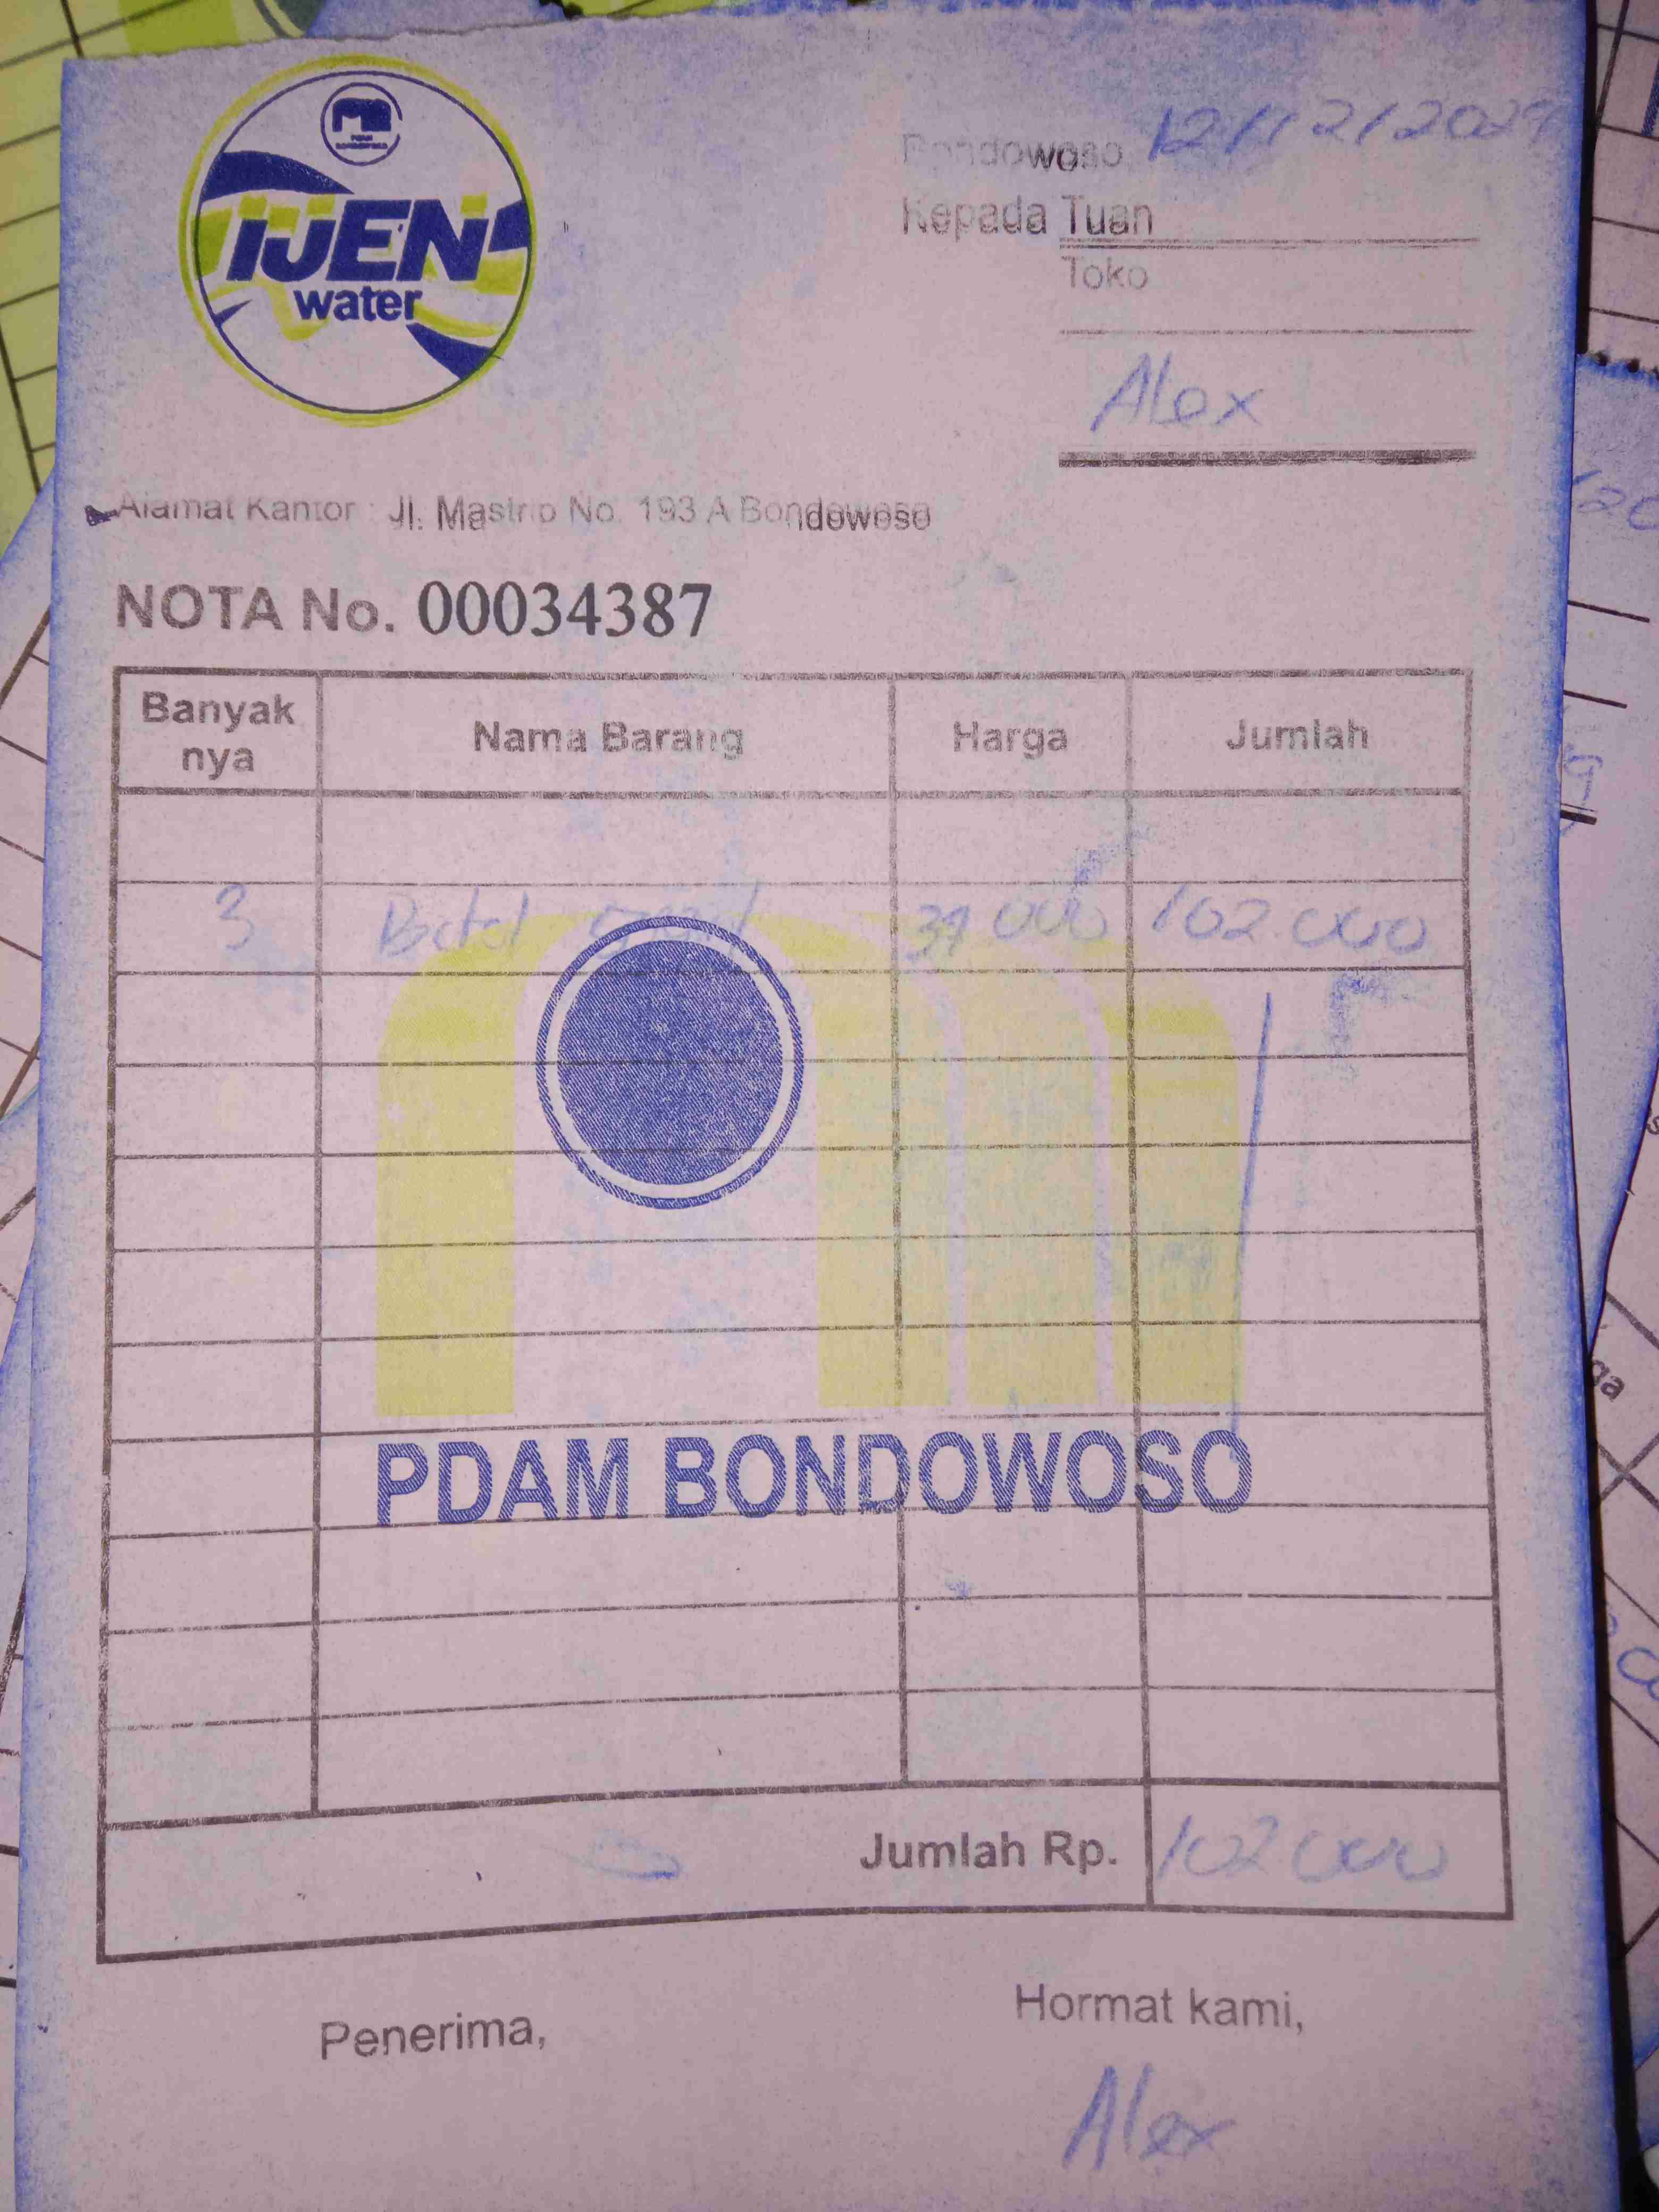 PDAM
BONDOWOSO
IJEN
water
Bondowoso, 12/12/2024
Kepada Tuan
Toko
Alex
Alamat Kantor : Jl. Mastrip No. 193 A Bondowoso
NOTA No. 00034387
Banyak nya Nama Barang Harga Jumlah
3 Botol 34 000 102.000
PDAM BONDOWOSO
Jumlah Rp. 102 000
Penerima, Hormat kami,
Alex